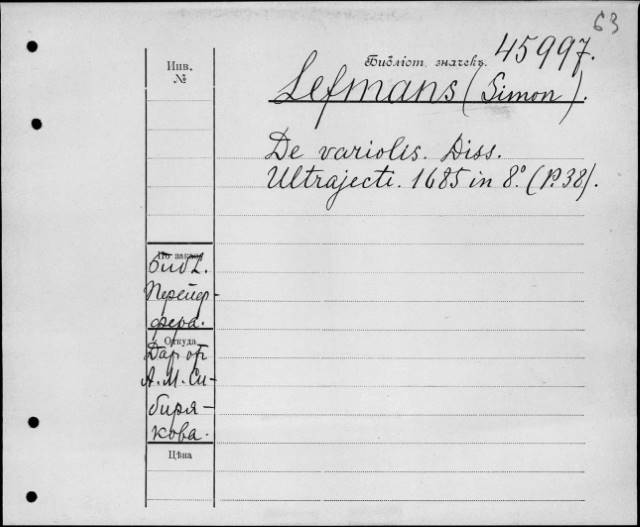 63
Библіот. значекъ. 45997.
Инв.
№
Lefmans (Simon).
De variolis. Diss.
Ultrajecti. 1685 in 8º. (P. 38).
По заказу
библ.
Перейр-
фера.
Откуда
Дар от
А. М. Си-
биря-
кова.
Цѣна